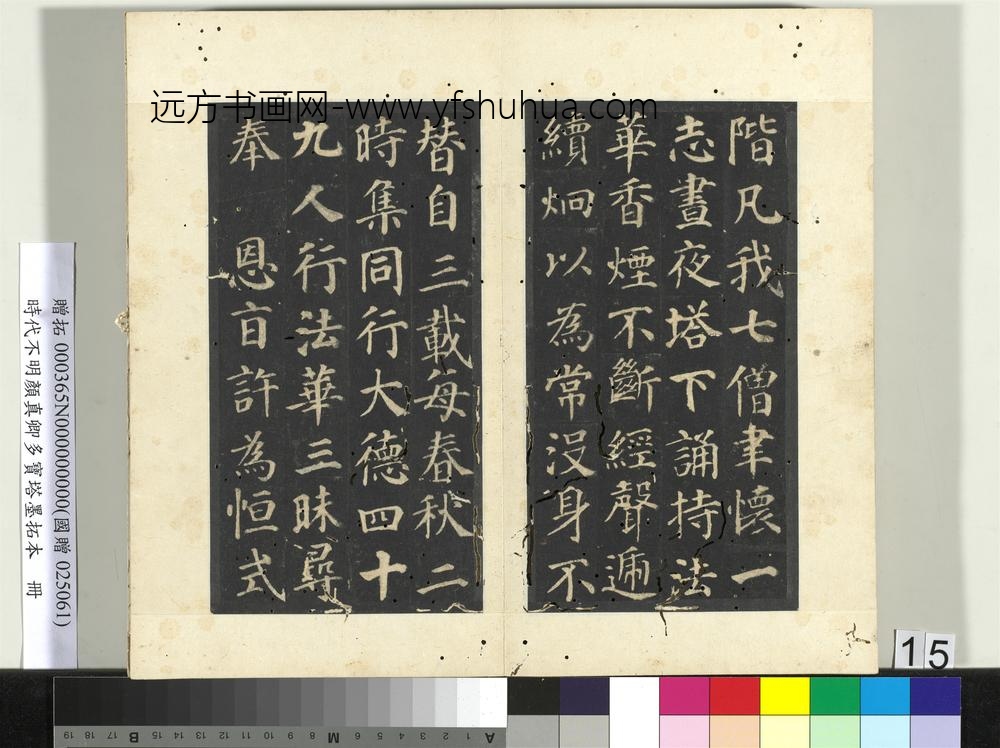 远方书画网-www.yfshuhua.com
階凡我七僧聿懷一
志晝夜塔下誦持法
華香煙不斷經聲遞
續炯以為常沒身不
替自三載每春秋二
時集同行大德四十
九人行法華三昧尋
奉 恩旨許為恒式
贈拓 000365N000000000(國贈 025061)
時代不明顏真卿多寶塔墨拓本 冊
15
A 1 2 3 4 5 6 M 8 9 10 11 12 13 14 15 B 17 18 19